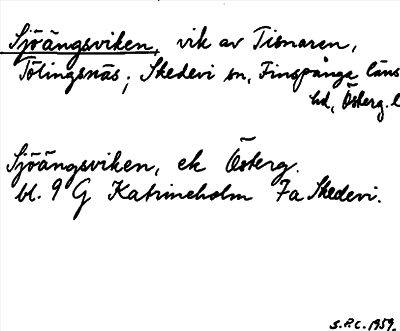 Sjöängsviken, vik av Tisnaren,
Tölingsnäs, Skedevi sn, Finspånga läns
hd, Österg. l
Sjöängsviken, ek Österg.
bl. 9 G Katrineholm 7a Skedevi.
S.P.C. 1959.